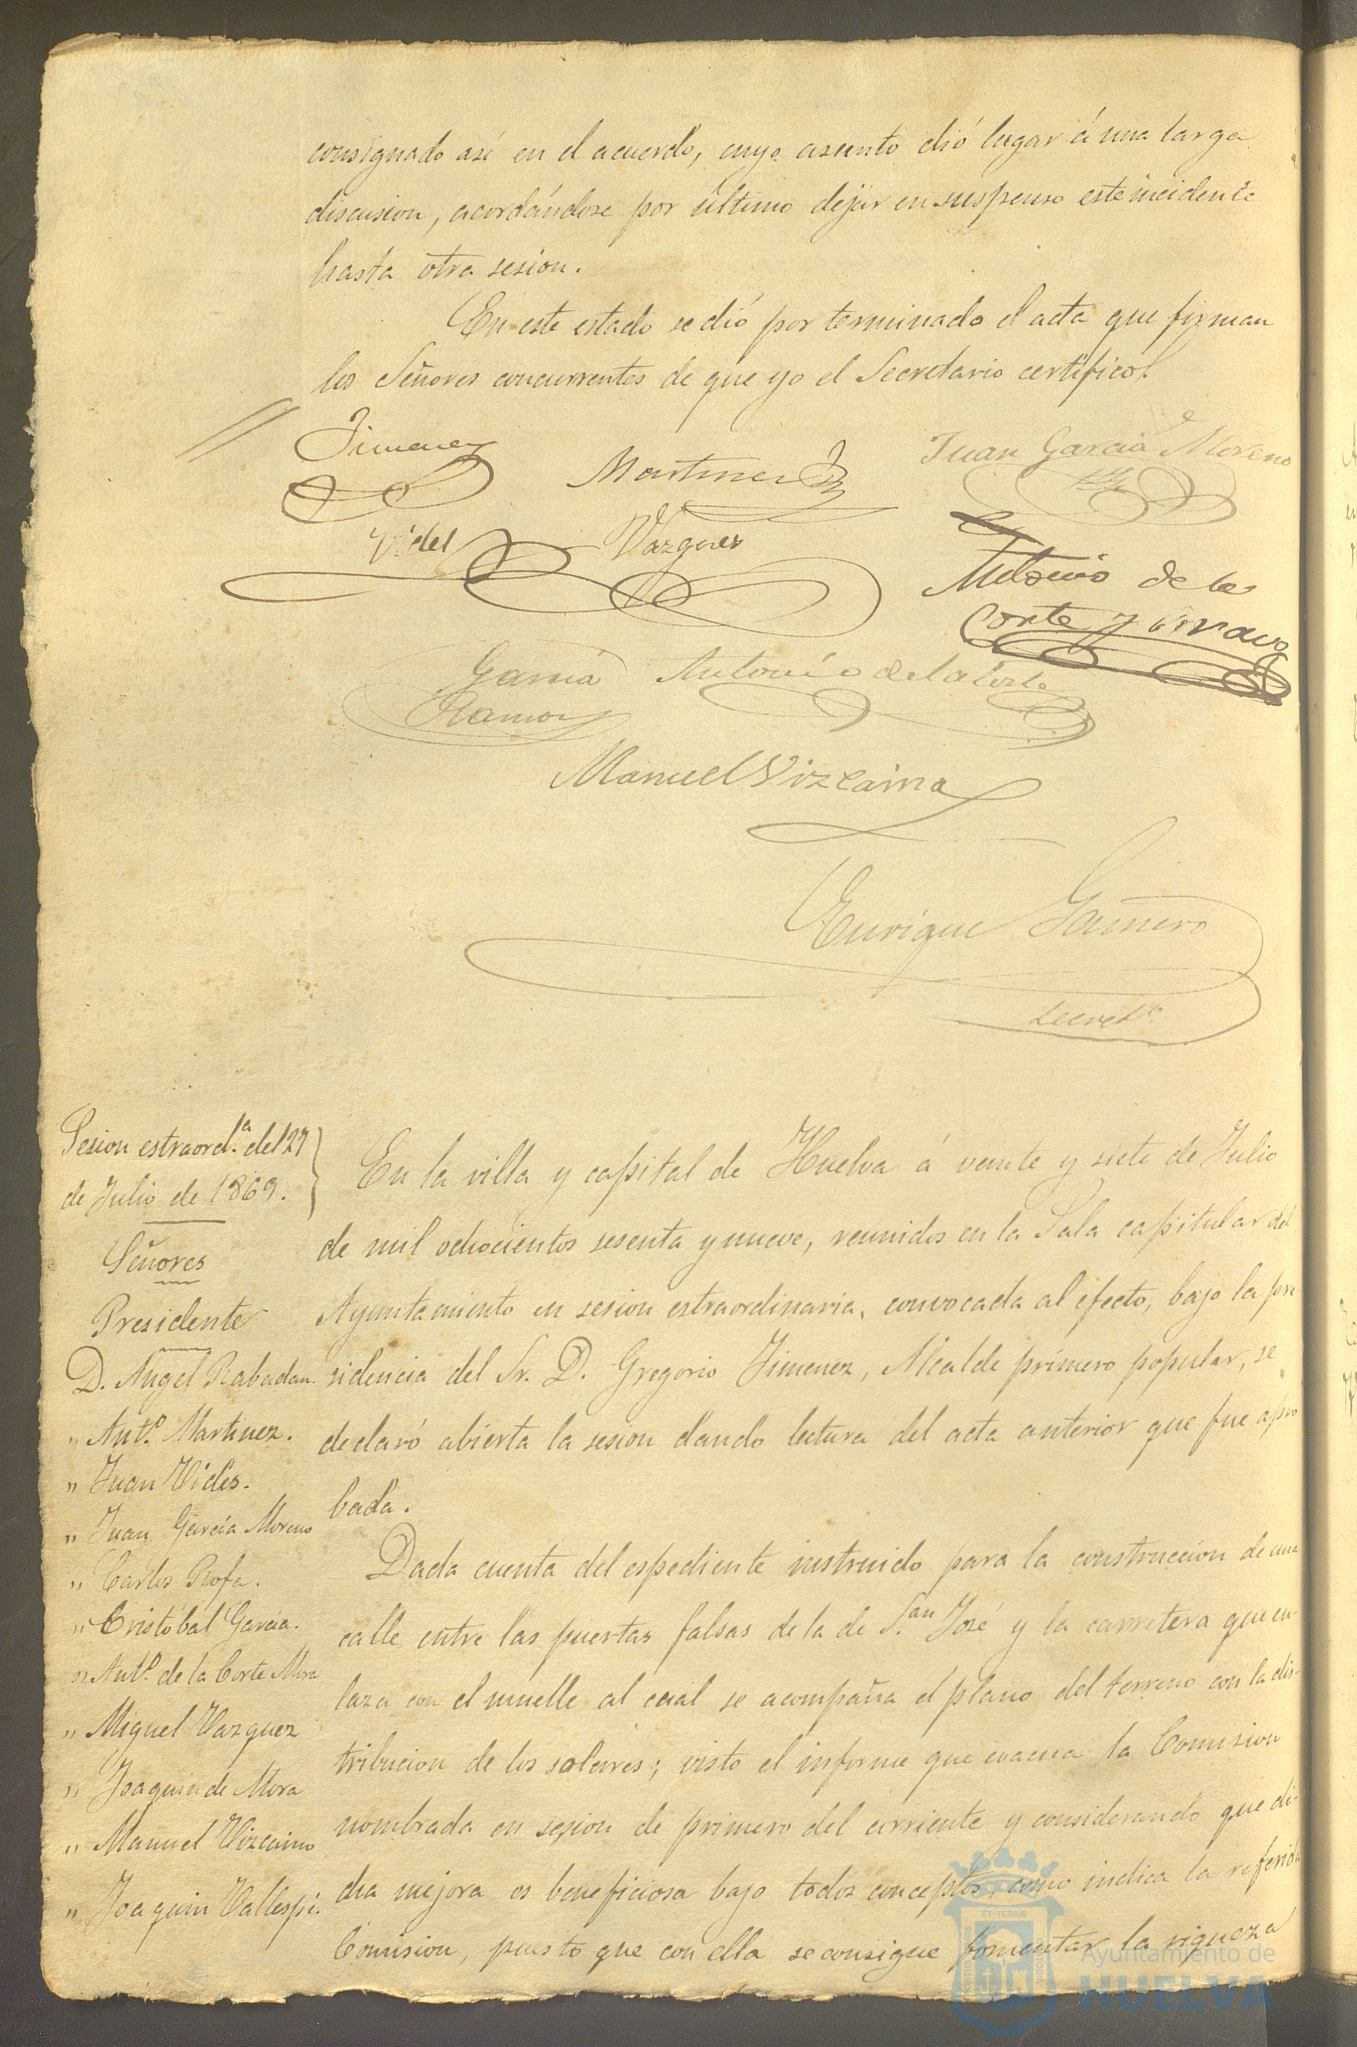 consignado así en el acuerdo, cuyo asunto dió lugar á una larga
discusion, acordándose por último dejar en suspenso este incidente
hasta otra sesion.
En este estado se dió por terminado el acta que firman
los Señores concurrentes de que yo el Secretario certifico.
Jimenez
Martinez
Juan Garcia Moreno
Vides
Vazquez
Antonio de la
Corte y
Garcia
Ramos
Antonio de la Corte
Manuel Vizcaino
Enrique Gamero
Secret.º
Sesion estraord.ª del 27
de Julio de 1869.
Señores
Presidente
D. Angel Rabadan.
" Ant.º Martinez.
" Juan Vides.
" Juan García Moreno
" Carlos Rofa.
" Cristóbal Garcia.
" Ant.º de la Corte Mora
" Miguel Vazquez
" Joaquin de Mora
" Manuel Vizcaino
" Joaquin Vallespi.
En la villa y capital de Huelva á veinte y siete de Julio
de mil ochocientos sesenta y nueve, reunidos en la Sala capitular del
Ayuntamiento en sesion estraordinaria, convocada al efecto, bajo la pre
sidencia del Sr. D. Gregorio Jimenez, Alcalde primero popular, se
declaró abierta la sesion dando lectura del acta anterior que fue apro
bada.
Dada cuenta del espediente instruido para la construccion de una
calle entre las puertas falsas de la de S.an José y la carretera que en-
laza con el muelle al cual se acompaña el plano del terreno con la dis-
tribucion de los solares; visto el informe que evacua la Comision
nombrada en sesion de primero del corriente y considerando que di-
cha mejora es beneficiosa bajo todos conceptos, como indica la referida
Comision, puesto que con ella se consigue fomentar la riqueza
Ayuntamiento de
HUELVA